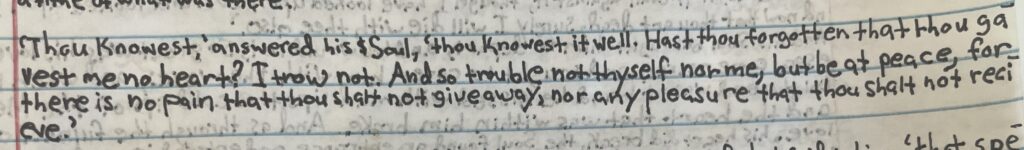 a time of what was there.
'Thou Knowest,' answered his Soul, 'thou Knowest it well. Hast thou forgotten that thou ga
vest me no heart? I trow not. And so trouble not thyself nor me, but be at peace, for
there is no pain that thou shalt not give away, nor any pleasure that thou shalt not reci
eve.'
'that spe